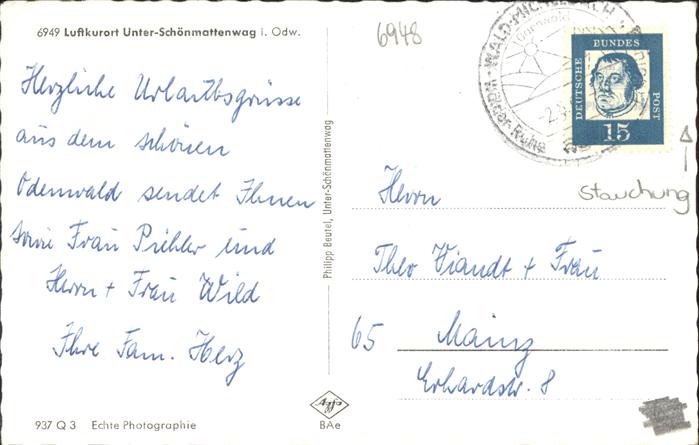 6949 Luftkurort Unter-Schönmattenwag i. Odw.
Herzliche Urlaubsgrüsse
aus dem schönen
Odenwald sendet Ihnen
sowie Frau Pichler und
Herrn + Frau Wild
Ihre Fam. Herz
937 Q 3 Echte Photographie
Philipp Beutel, Unter-Schönmattenwag
Agfa
BAe
6948
WALD-MICHELBACH
DEUTSCHE
BUNDES
POST
15
Stauchung
Herrn
Theo Viandt + Frau
65 Mainz
Erhardstr. 8